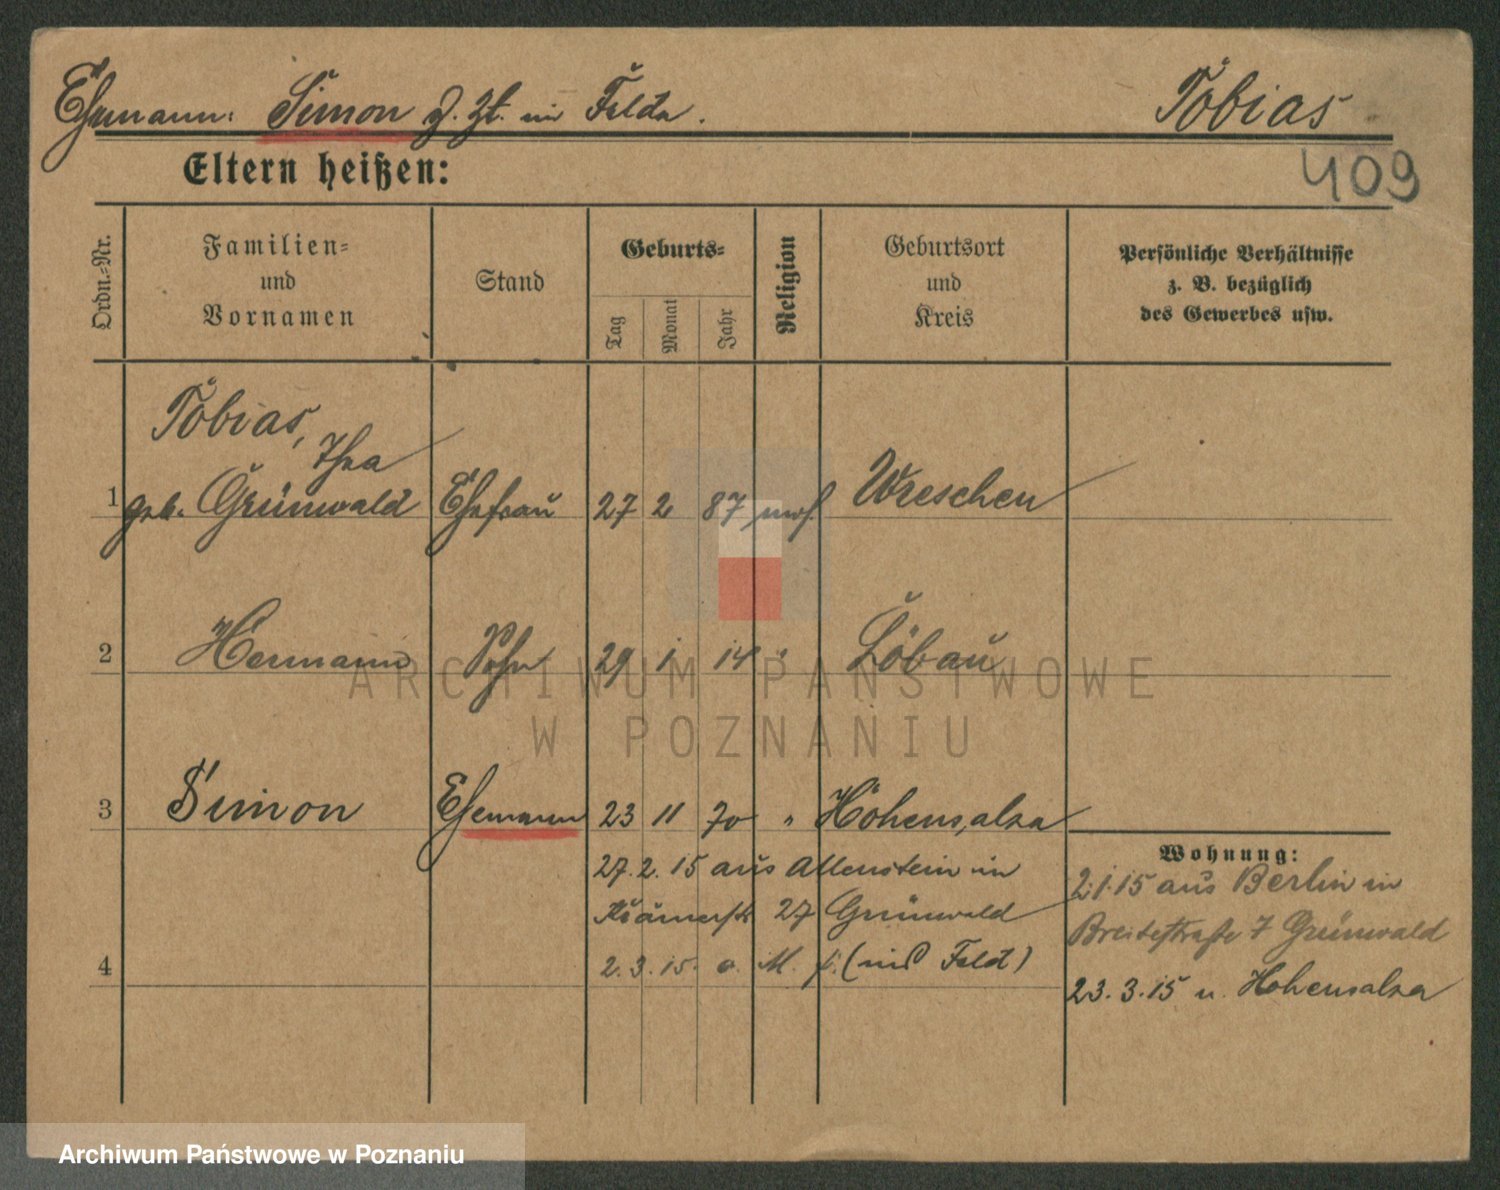 Ehemann: Simon z. Zt. im Felde.
Tobias
Eltern heißen:
409
Ordn.-Nr.
Familien-
und
Vornamen
Stand
Geburts-
Tag
Monat
Jahr
Religion
Geburtsort
und
Kreis
Persönliche Verhältnisse
z. B. bezüglich
des Gewerbes usw.
Tobias,
1 geb. Grünwald Ehefrau 27 2 87 mos. Wreschen
2 Hermann Sohn 29 1 14 " Löbau
3 Simon Ehemann 23 11 70 " Hohensalza
27. 2. 15 aus Allenstein in
27 Grünwald
2. 3. 15. (ins Feld)
4
Wohnung:
2.1.15 aus Berlin in
Breitestraße 7 Grünwald
23. 3. 15 n. Hohensalza
ARCHIWUM PAŃSTWOWE
W POZNANIU
Archiwum Państwowe w Poznaniu